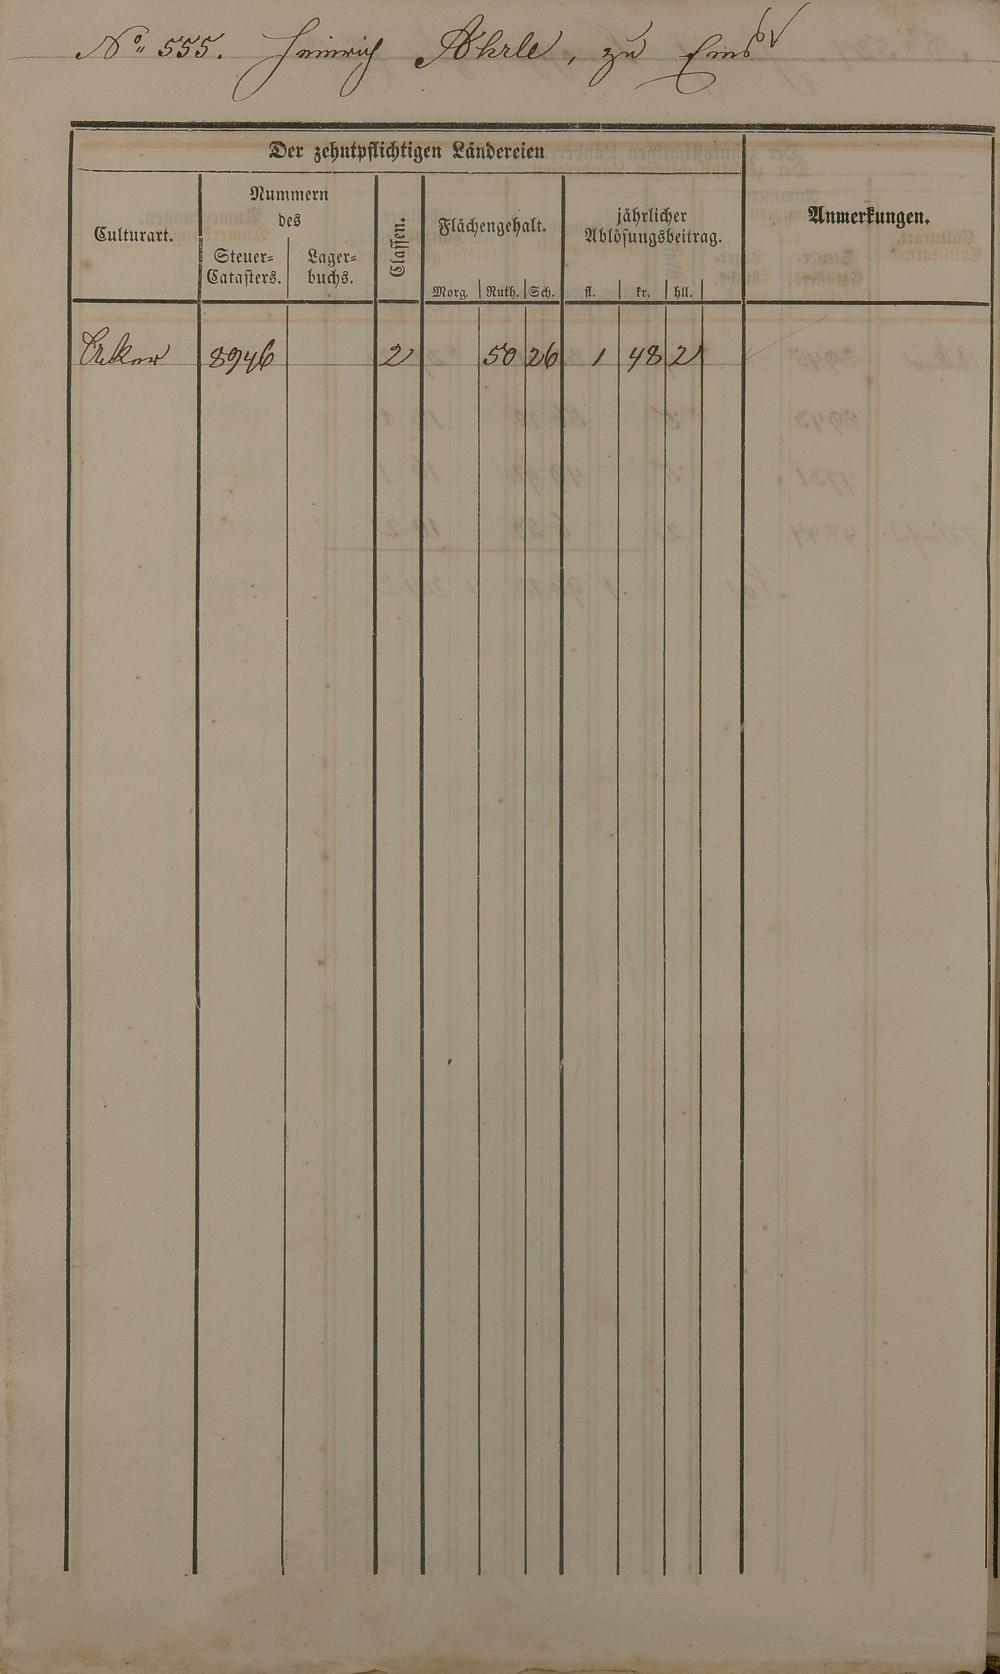 No 555. Heinrich Ahrle, zu Ems
Der zehntpflichtigen Ländereien
Culturart.
Nummern
des
Steuer-
Catasters.
Lager-
buchs.
Classen.
Flächengehalt.
Morg. Ruth. Sch.
jährlicher
Ablösungsbeitrag.
fl. kr. hll.
Anmerkungen.
Acker 8946 2 50 26 1 48 2